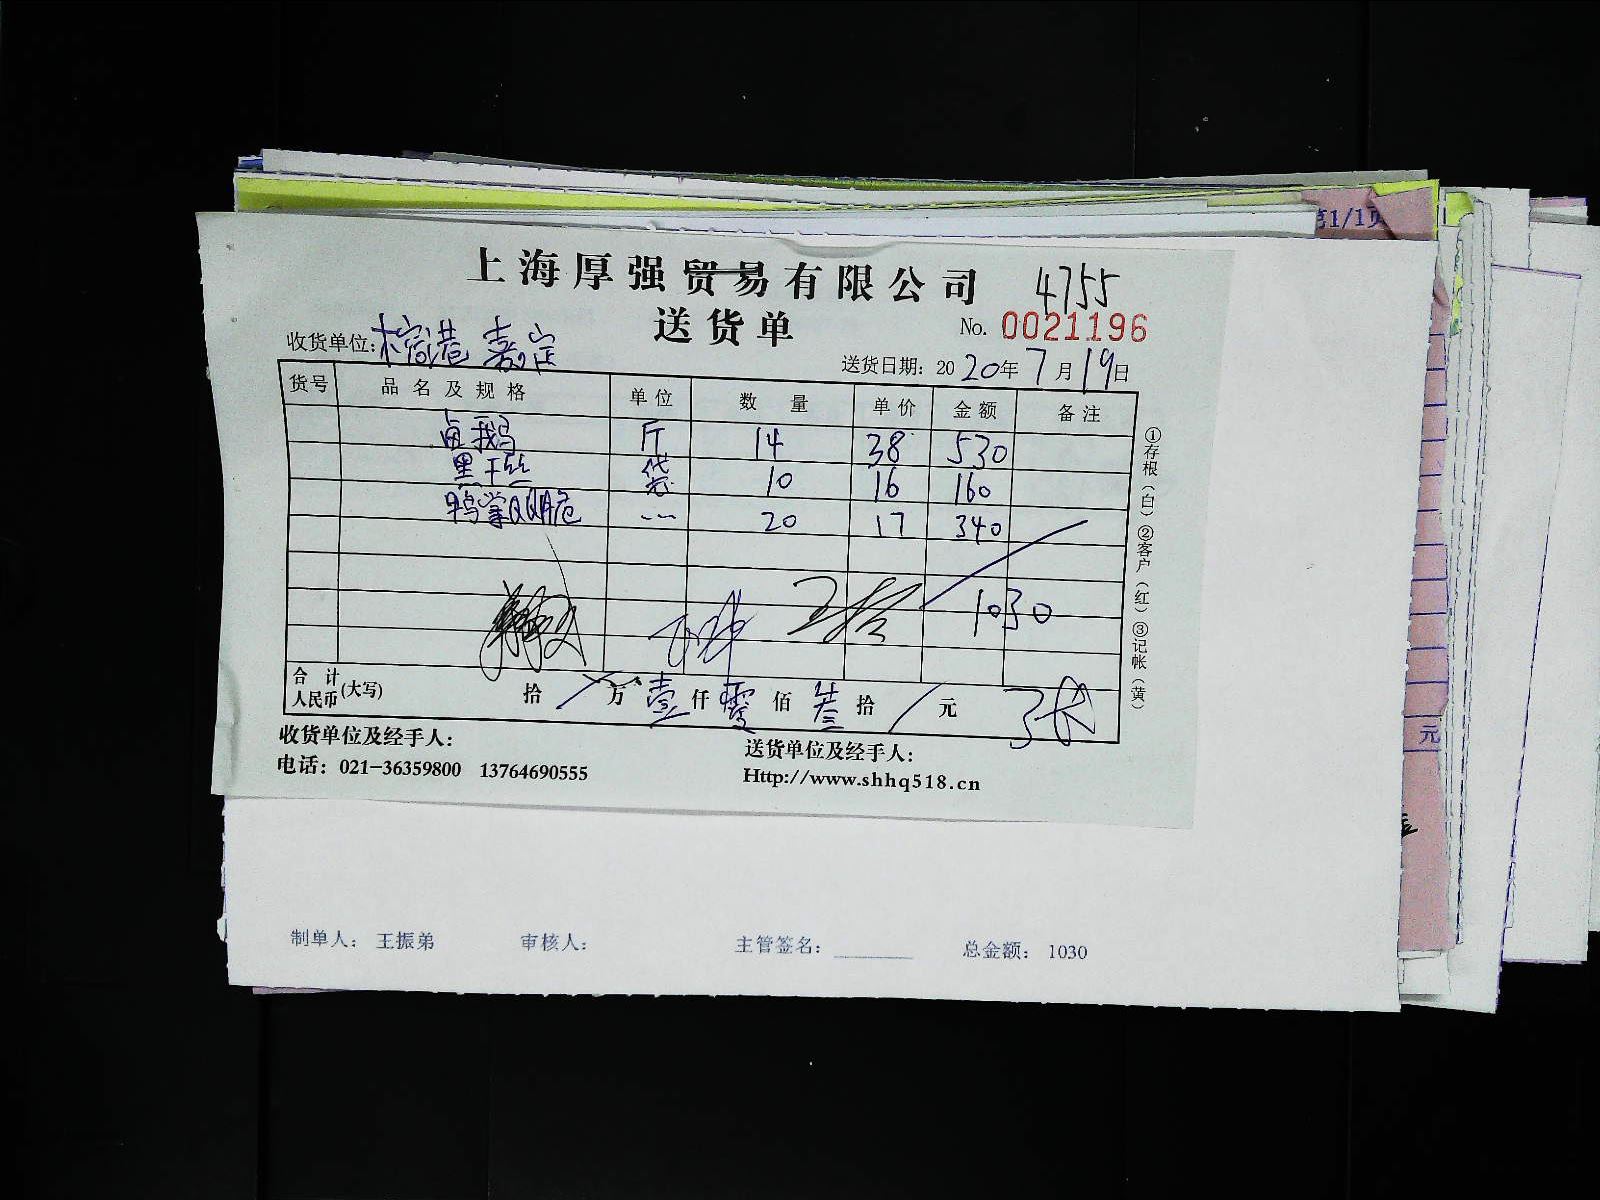 第1/1页
上海厚强贸易有限公司 4755
送货单 No. 0021196
收货单位: 嘉定 送货日期: 2020年7月19日
货号 品名及规格 单位 数量 单价 金额 备注
卤鹅 斤 14 38 530
黑干丝 袋 10 16 160
鸭掌 20 17 340
1030
合计人民币(大写) 拾 / 万 壹 仟 零 佰 叁 拾 / 元
收货单位及经手人: 送货单位及经手人:
电话: 021-36359800 13764690555 Http://www.shhq518.cn
①存根(白) ②客户(红) ③记帐(黄)
元
制单人: 王振弟 审核人: 主管签名: 总金额: 1030